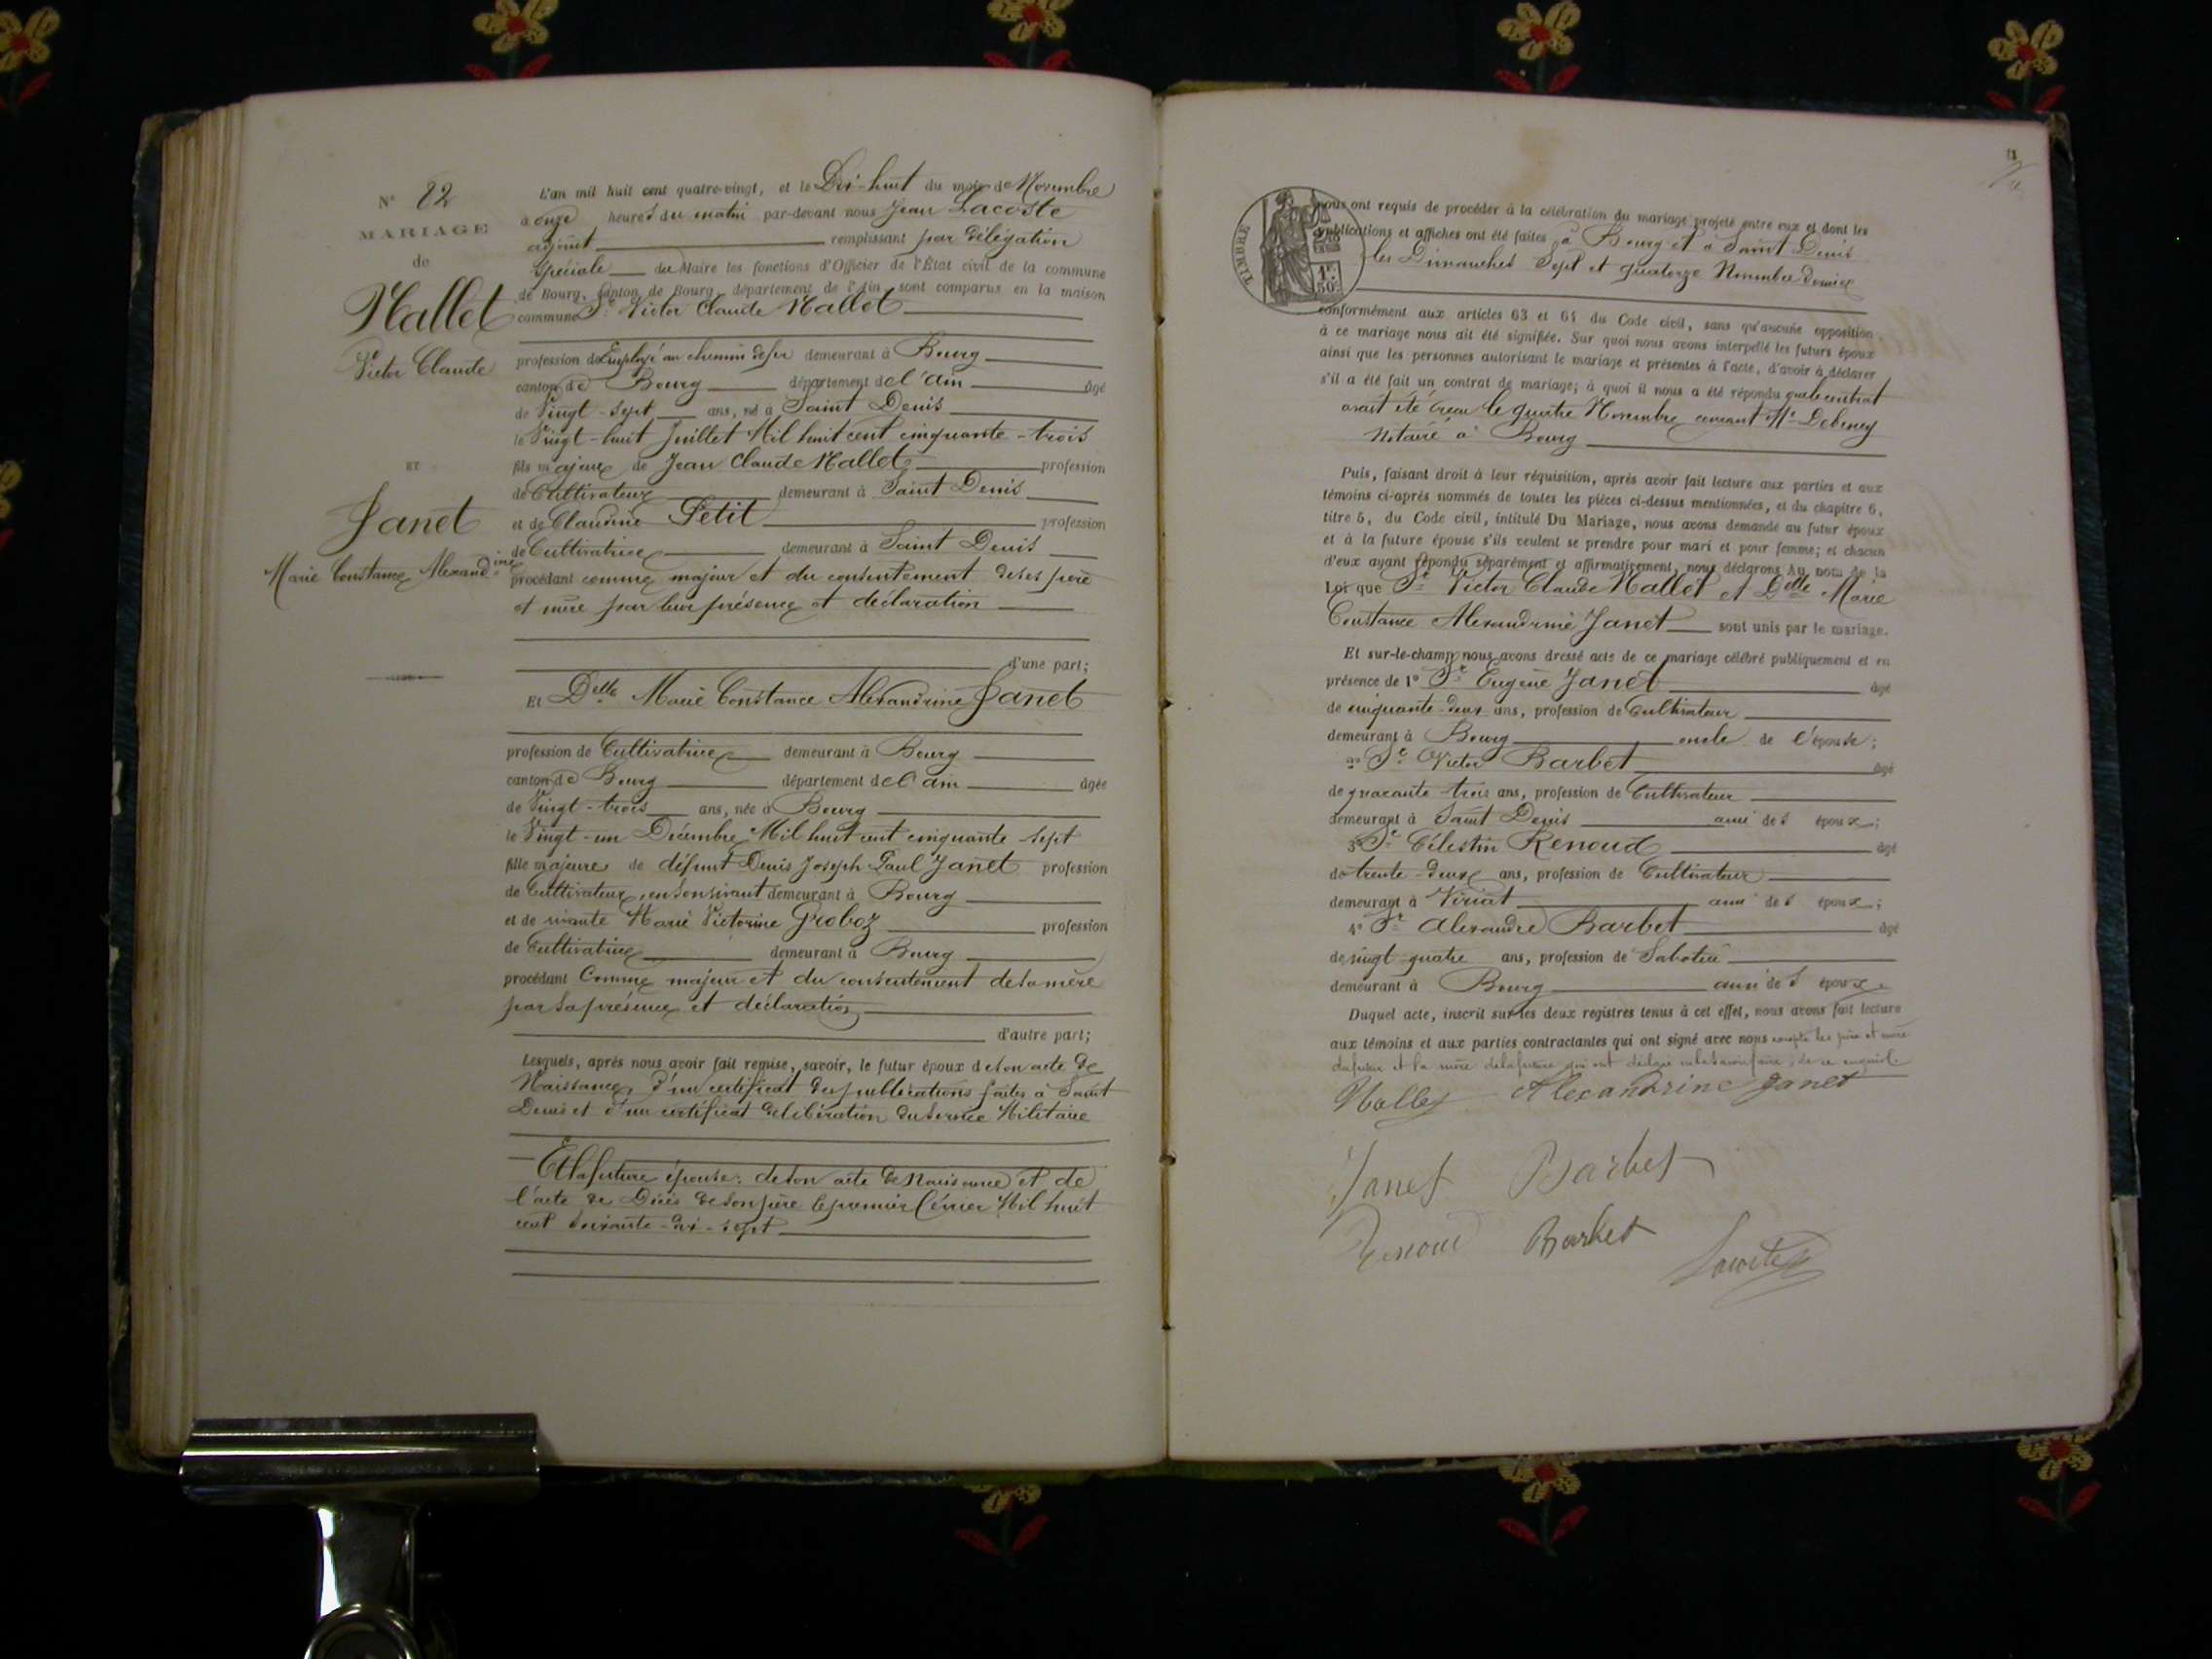 N° 82
MARIAGE
de
Mallet
Victor Claude
ET
Janet
Marie Constance Alexandrine
L'an mil huit cent quatre-vingt, et le Dix-huit du mois de Novembre
à onze heures du matin par-devant nous Jean Lacoste
adjoint remplissant par délégation
spéciale du Maire les fonctions d'Officier de l'État civil de la commune
de Bourg, Canton de Bourg, département de l'Ain, sont comparus en la maison
commune Sr Victor Claude Mallet
profession de Employé au chemin de fer demeurant à Bourg
canton de Bourg département de l'Ain âgé
de Vingt-sept ans, né à Saint Denis
le Vingt-huit Juillet Mil huit cent cinquante-trois
fils majeur de Jean Claude Mallet profession
de Cultivateur demeurant à Saint Denis
et de Claudine Petit profession
de Cultivatrice demeurant à Saint Denis
procédant comme majeur et du consentement de ses père
et mère par leur présence et déclaration
d'une part;
Et Delle Marie Constance Alexandrine Janet
profession de Cultivatrice demeurant à Bourg
canton de Bourg département de l'Ain âgée
de Vingt-trois ans, née à Bourg
le Vingt-un Décembre Mil huit cent cinquante-sept
fille majeure de défunt Denis Joseph Paul Janet profession
de Cultivateur, en son vivant demeurant à Bourg
et de vivante Marie Victorine Groboz profession
de Cultivatrice demeurant à Bourg
procédant Comme majeure et du consentement de sa mère
par sa présence et déclaration
d'autre part;
Lesquels, après nous avoir fait remise, savoir, le futur époux de son acte de
Naissance, d'un certificat des publications faites à Saint
Denis et d'un certificat de libération du service Militaire
Et la future épouse: de son acte de Naissance et de
l'acte de Décès de son père le premier février Mil huit
cent soixante-dix-sept
TIMBRE
1F.
50c
nous ont requis de procéder à la célébration du mariage projeté entre eux et dont les
publications et affiches ont été faites à Bourg et à Saint Denis
les Dimanches Sept et quatorze Novembre dernier
conformément aux articles 63 et 64 du Code civil, sans qu'aucune opposition
à ce mariage nous ait été signifiée. Sur quoi nous avons interpellé les futurs époux
ainsi que les personnes autorisant le mariage et présentes à l'acte, d'avoir à déclarer
s'il a été fait un contrat de mariage; à quoi il nous a été répondu que le contrat
avait été reçu le quatre Novembre courant Me Debeney
Notaire à Bourg
Puis, faisant droit à leur réquisition, après avoir fait lecture aux parties et aux
témoins ci-après nommés de toutes les pièces ci-dessus mentionnées, et du chapitre 6,
titre 5, du Code civil, intitulé Du Mariage, nous avons demandé au futur époux
et à la future épouse s'ils veulent se prendre pour mari et pour femme; et chacun
d'eux ayant répondu séparément et affirmativement, nous déclarons Au nom de la
Loi que Sr Victor Claude Mallet et Delle Marie
Constance Alexandrine Janet sont unis par le mariage.
Et sur-le-champ nous avons dressé acte de ce mariage célébré publiquement et en
présence de 1° Sr Eugène Janet âgé
de cinquante-deux ans, profession de Cultivateur
demeurant à Bourg oncle de l'épouse;
2° Sr Victor Barbet âgé
de quarante-trois ans, profession de Cultivateur
demeurant à Saint Denis ami des époux;
3° Sr Célestin Renoud âgé
de trente-deux ans, profession de Cultivateur
demeurant à Viriat ami des époux;
4° Sr Alexandre Barbet âgé
de vingt-quatre ans, profession de Sabotier
demeurant à Bourg ami des époux.
Duquel acte, inscrit sur les deux registres tenus à cet effet, nous avons fait lecture
aux témoins et aux parties contractantes qui ont signé avec nous excepté les père et mère
du futur et la mère de la future qui ont déclaré ne le savoir faire, de ce enquis
Mallet Alexandrine Janet
Janet Barbet
Renoud Barbet Lacoste